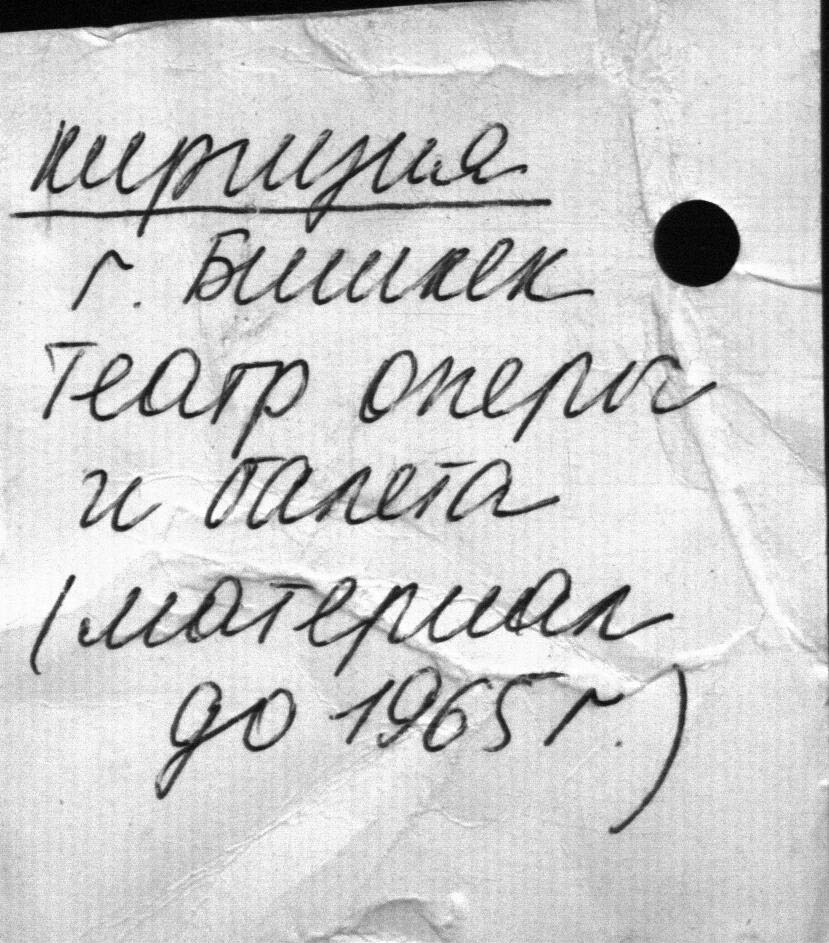 Киргизия
г. Бишкек
Театр оперы
и балета
(материал
до 1965 г.)